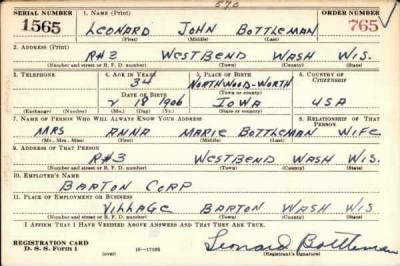 570
SERIAL NUMBER 1. NAME (Print) ORDER NUMBER
1565 LEONARD JOHN BOTTLEMAN 765
(First) (Middle) (Last)
2. ADDRESS (Print)
R#3 WESTBEND WASH WIS.
(Number and street or R. F. D. number) (Town) (County) (State)
3. TELEPHONE 4. AGE IN YEARS 5. PLACE OF BIRTH 6. COUNTRY OF CITIZENSHIP
34 NORTHWOOD-WORTH
DATE OF BIRTH (Town or county)
2 18 1906 IOWA USA
(Exchange) (Number) (Mo.) (Day) (Yr.) (State or country)
7. NAME OF PERSON WHO WILL ALWAYS KNOW YOUR ADDRESS 8. RELATIONSHIP OF THAT PERSON
MRS ANNA MARIE BOTTLEMAN WIFE
(Mr., Mrs., Miss) (First) (Middle) (Last)
9. ADDRESS OF THAT PERSON
R#3 WESTBEND WASH WIS.
(Number and street or R. F. D. number) (Town) (County) (State)
10. EMPLOYER'S NAME
BARTON CORP
11. PLACE OF EMPLOYMENT OR BUSINESS
VILLAGE BARTON WASH WIS
(Number and street or R. F. D. number) (Town) (County) (State)
I AFFIRM THAT I HAVE VERIFIED ABOVE ANSWERS AND THAT THEY ARE TRUE.
REGISTRATION CARD Leonard Bottleman
D. S. S. Form 1 (over) (Registrant's signature)